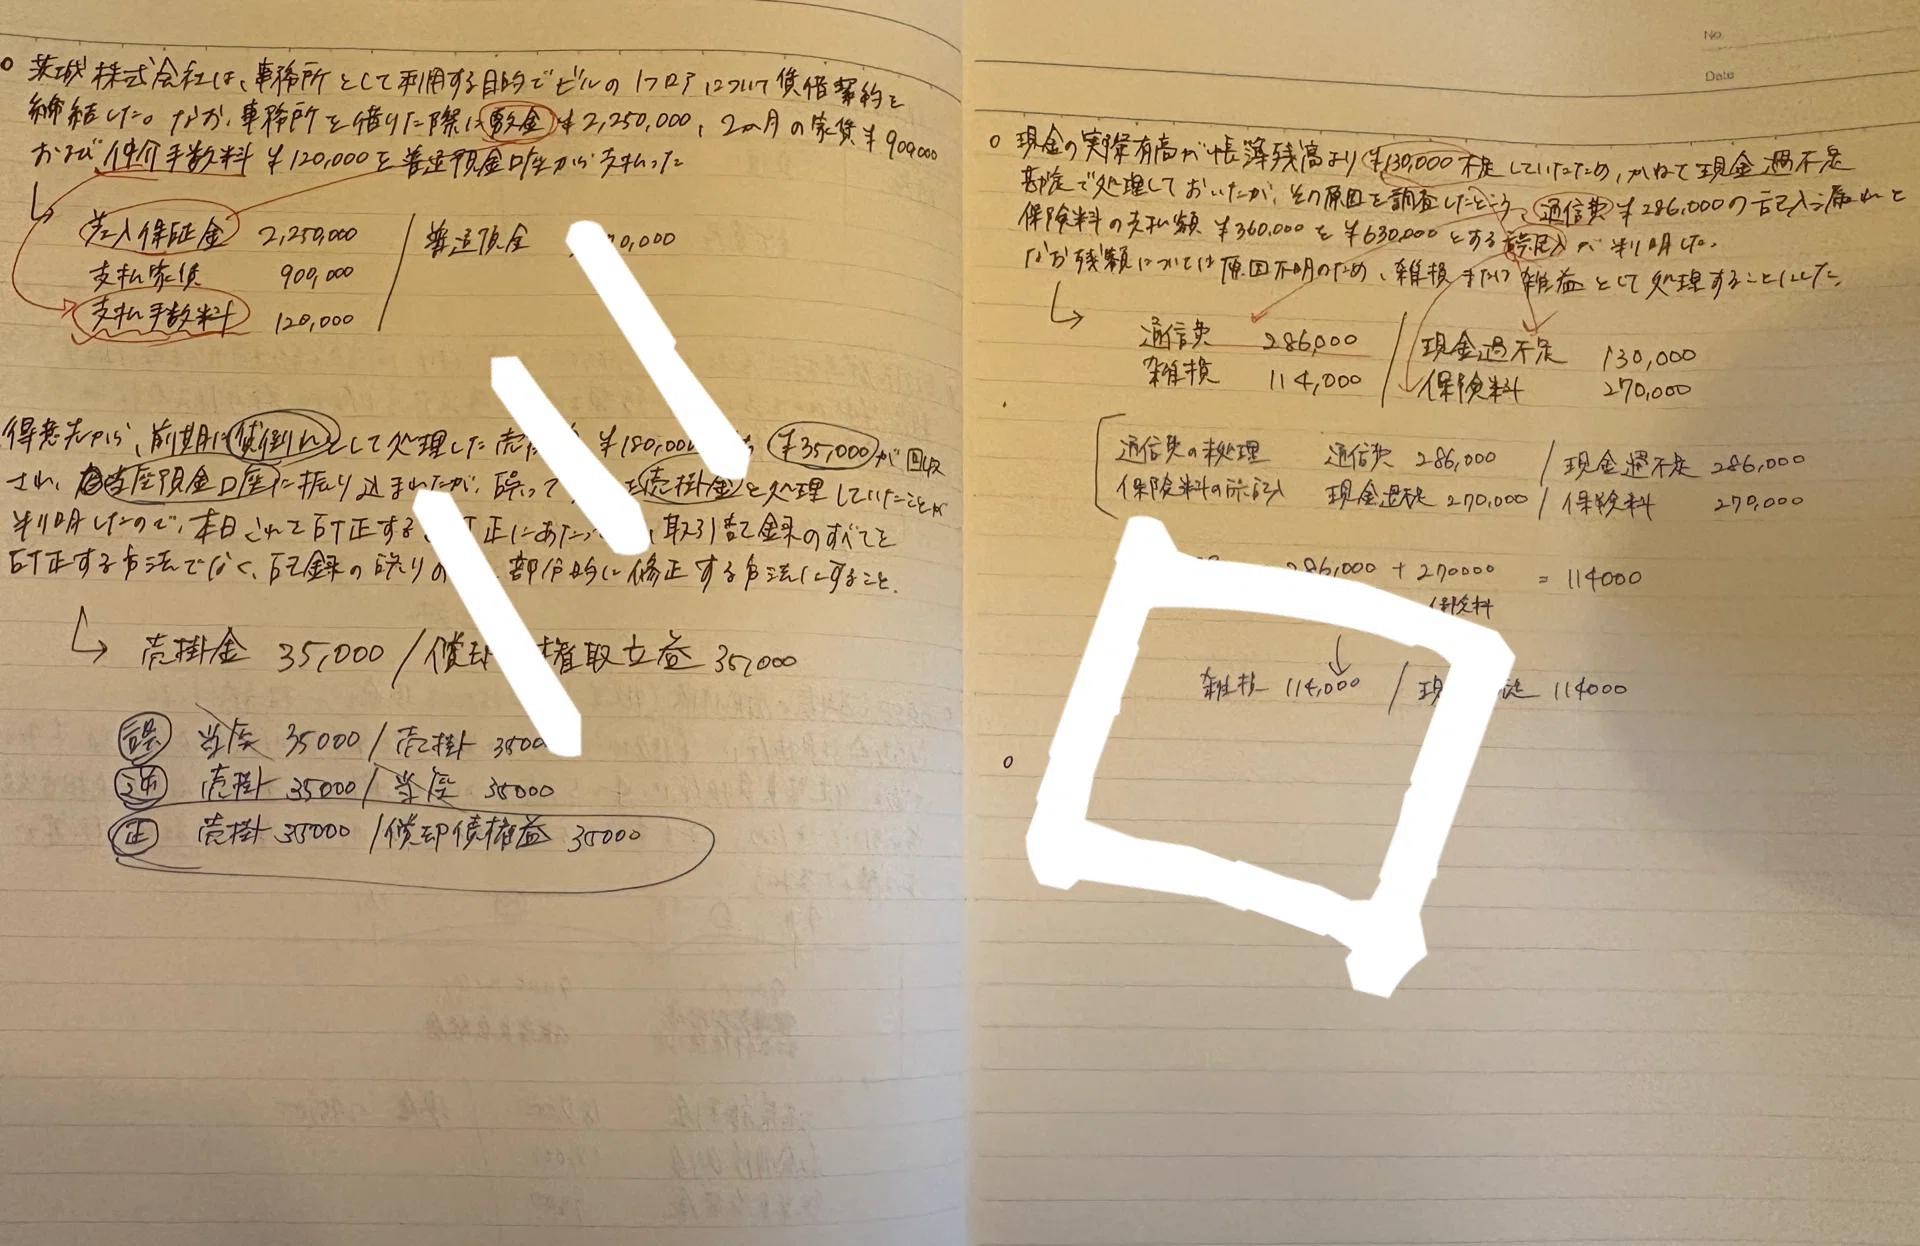 茨城株式会社は、事務所として利用する目的でビルの1フロアについて賃借契約を
締結した。なお、事務所を借りた際に敷金¥2,250,000、2か月の家賃¥900,000
および仲介手数料¥120,000を普通預金口座から支払った
差入保証金 2,250,000 / 普通預金 0,000
支払家賃 900,000
支払手数料 120,000
得意先から、前期に貸倒れとして処理した売 ¥180,000 ¥35,000が回収
され、当座預金口座に振り込まれたが、誤って 売掛金を処理していたことが
判明したので、本日これを訂正する 訂正にあたっ 取引記録のすべてを
訂正する方法でなく、記録の誤りの 部分的に修正する方法にすること。
売掛金 35,000 / 償却 権取立益 35,000
誤 当座 35000 / 売掛 3500
逆 売掛 35000 / 当座 35000
正 売掛 35000 / 償却債権益 35000
No.
Date
現金の実際有高が帳簿残高より¥130,000不足していたため、かねて現金過不足
勘定で処理しておいたが、その原因を調査したところ、通信費¥286,000の記入漏れと
保険料の支払額¥360,000を¥630,000とする誤記入が判明した。
なお残額については原因不明のため、雑損または雑益として処理することにした。
通信費 286,000 / 現金過不足 130,000
雑損 114,000 / 保険料 270,000
通信費の未処理 通信費 286,000 / 現金過不足 286,000
保険料の誤記入 現金過不足 270,000 / 保険料 270,000
286,000 + 270000 = 114000
保険料
雑損 114,000 / 現 足 114000